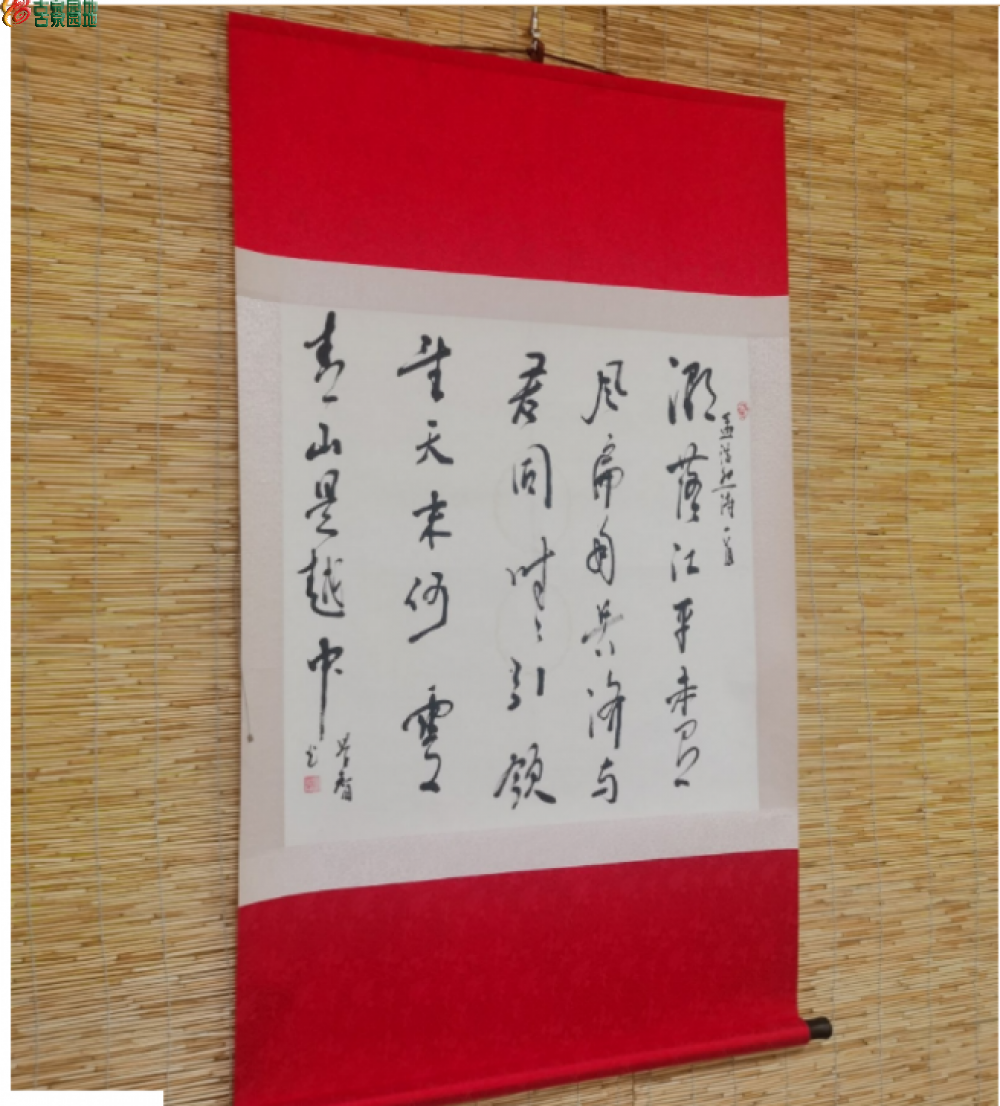 孟浩然诗一首
潮落江平未有
风扁舟共济与
君同时々引领
望天末何處
青山是越中